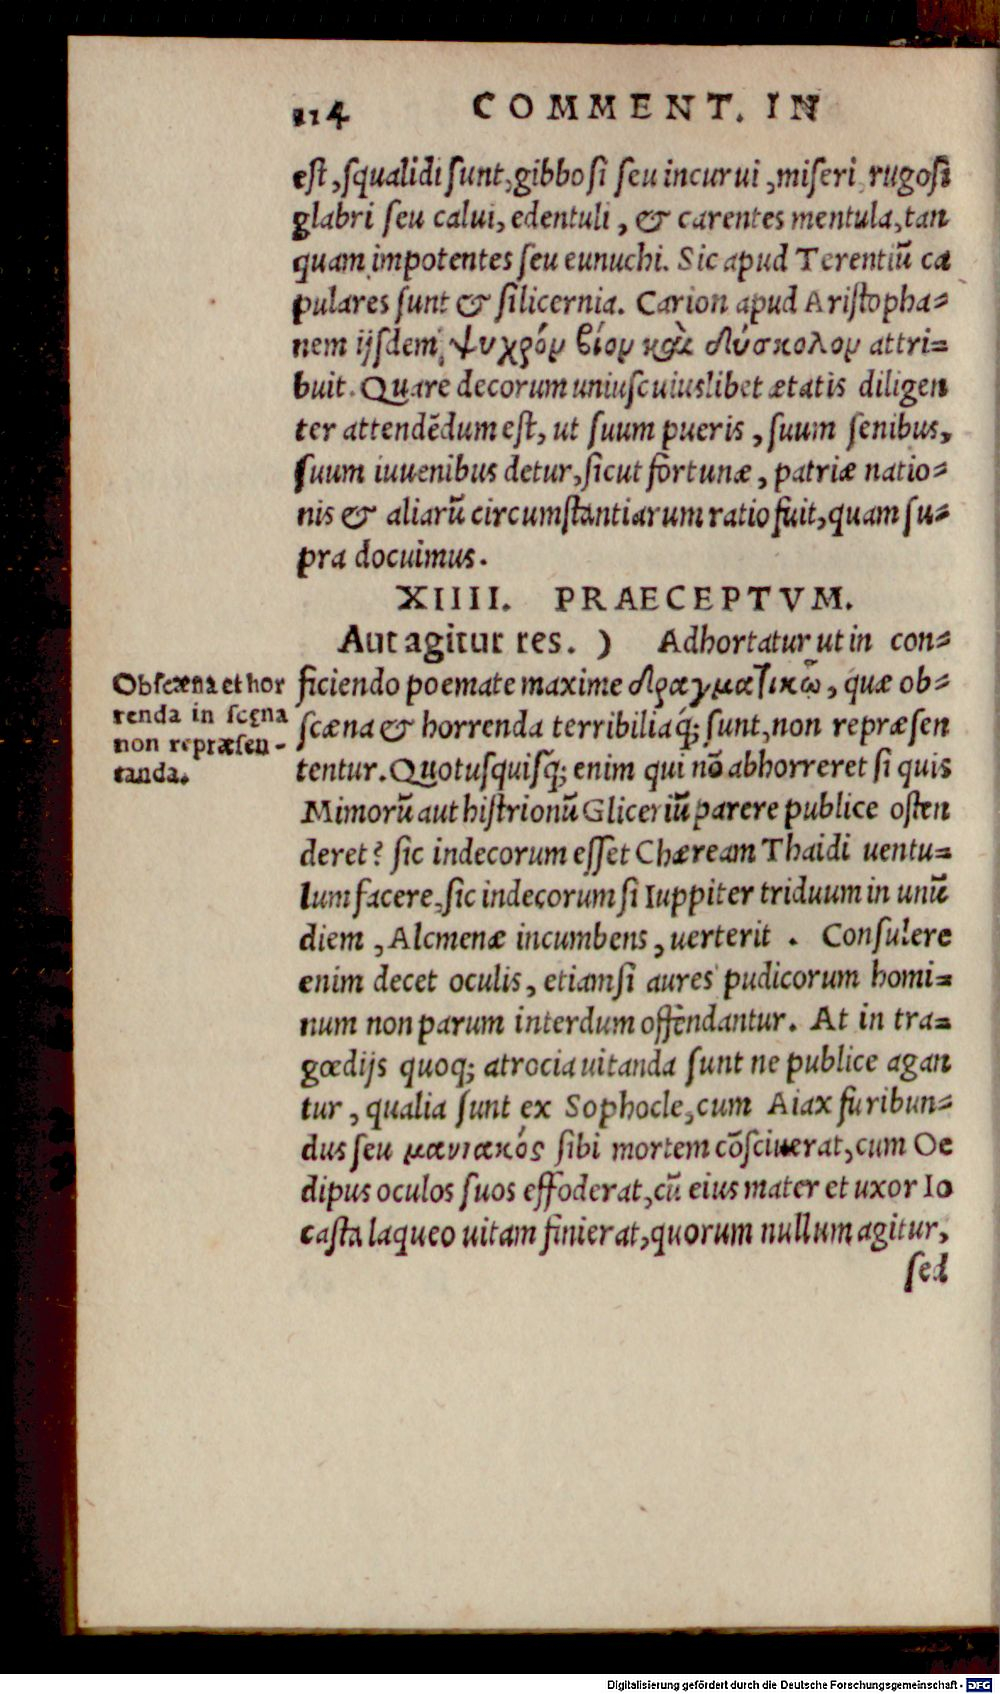 114 COMMENT. IN
est, squalidi sunt, gibbosi seu incurui, miseri, rugosi
glabri seu calui, edentuli, & carentes mentula, tan
quam impotentes seu eunuchi. Sic apud Terentiū ca
pulares sunt & silicernia. Carion apud Aristopha-
nem ijsdem, ψυχρόν βίον καὶ δύσκολον attri-
buit. Quare decorum uniuscuiuslibet ætatis diligen
ter attendēdum est, ut suum pueris, suum senibus,
suum iuuenibus detur, sicut fortunæ, patriæ natio-
nis & aliarū circumstantiarum ratio fuit, quam su-
pra docuimus.
XIIII. PRAECEPTVM.
Aut agitur res. ) Adhortatur ut in con-
ficiendo poemate maxime δραματικῶ, quæ ob-
scæna & horrenda terribiliaq́; sunt, non repræsen
tentur. Quotusquisq́; enim qui nō abhorreret si quis
Mimorū aut histrionū Gliceriū parere publice osten
deret? sic indecorum esset Chæream Thaidi uentu-
lum facere, sic indecorum si Iuppiter triduum in unū
diem, Alcmenæ incumbens, uerterit. Consulere
enim decet oculis, etiamsi aures pudicorum homi-
num non parum interdum offendantur. At in tra-
gœdijs quoq; atrocia uitanda sunt ne publice agan
tur, qualia sunt ex Sophocle, cum Aiax furibun-
dus seu μανιακός sibi mortem cōsciuerat, cum Oe
dipus oculos suos effoderat, cū eius mater et uxor Io
casta laqueo uitam finierat, quorum nullum agitur,
sed
Obscæna et hor
renda in scęna
non repræsen-
tanda.
Digitalisierung gefördert durch die Deutsche Forschungsgemeinschaft - DFG